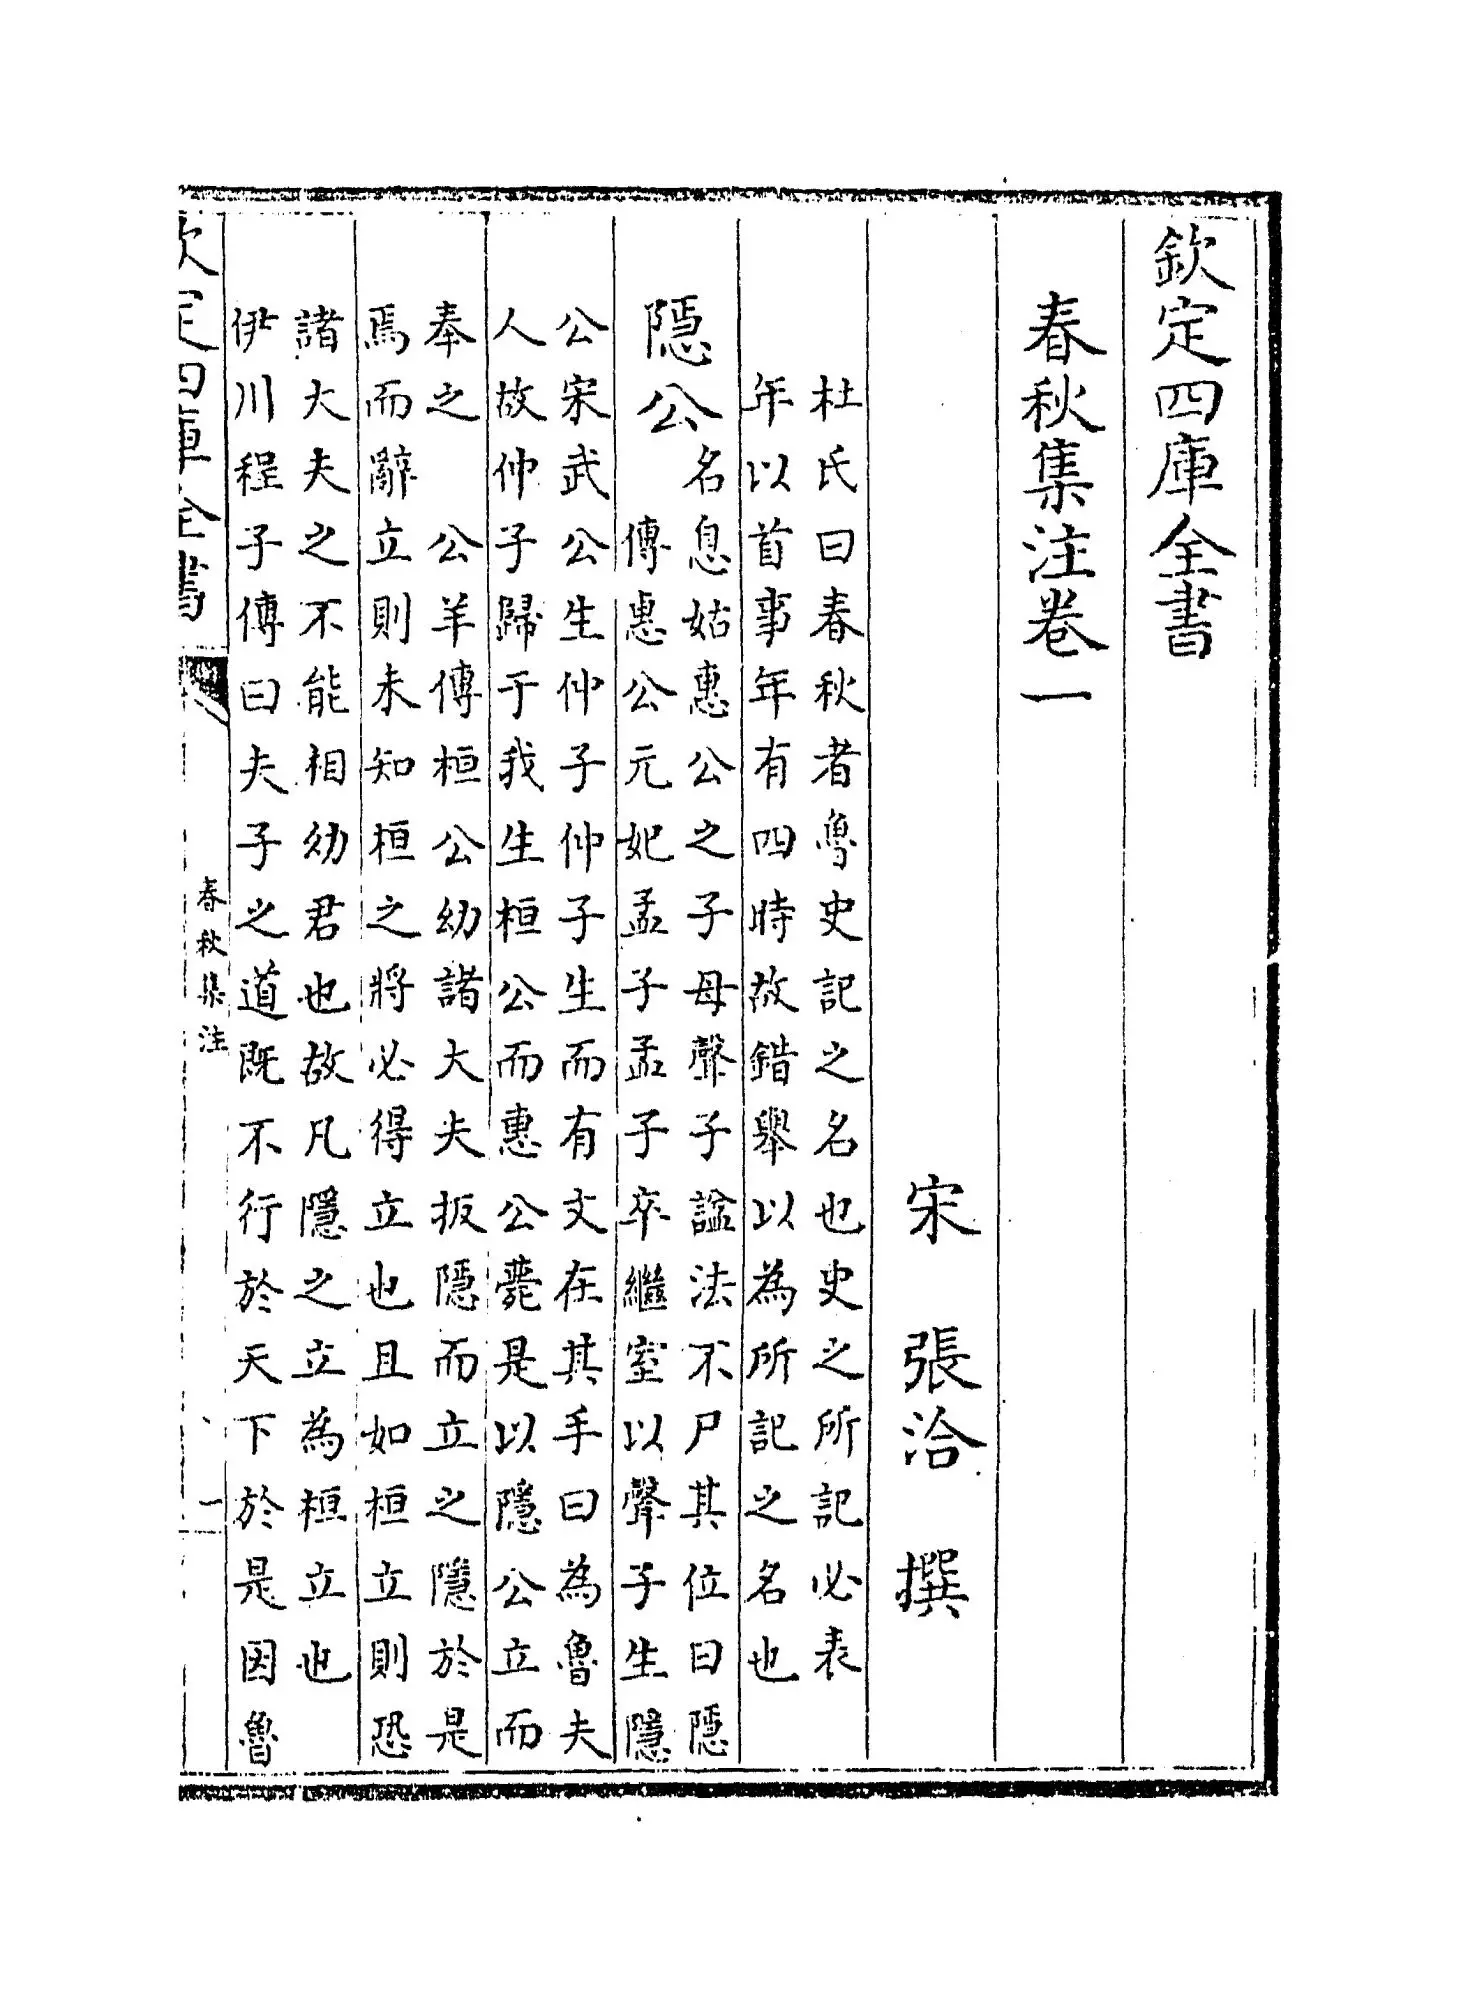 欽定四庫全書
春秋集注卷一
宋 張洽 撰
杜氏曰春秋者魯史記之名也史之所記必表
年以首事年有四時故錯舉以為所記之名也
隱公
名息姑惠公之子母聲子諡法不尸其位曰隱
傳惠公元妃孟子孟子卒繼室以聲子生隱
公宋武公生仲子仲子生而有文在其手曰為魯夫
人故仲子歸于我生桓公而惠公薨是以隱公立而
奉之 公羊傳桓公幼諸大夫扳隱而立之隱於是
焉而辭立則未知桓之將必得立也且如桓立則恐
諸大夫之不能相幼君也故凡隱之立為桓立也
伊川程子傳曰夫子之道既不行於天下於是因魯
欽定四庫全書
春秋集注
一